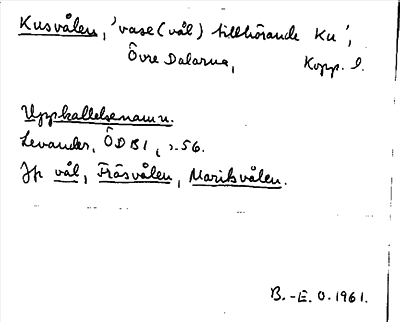 Kusvålen, 'vase (vål) tillhörande Ku',
Övre Dalarna, Kopp. l.
Uppkallelsenamn.
Levander, ÖDB I, s. 56.
Jfr vål, Fräsvålen, Maritsvålen.
B.-E. O. 1961.